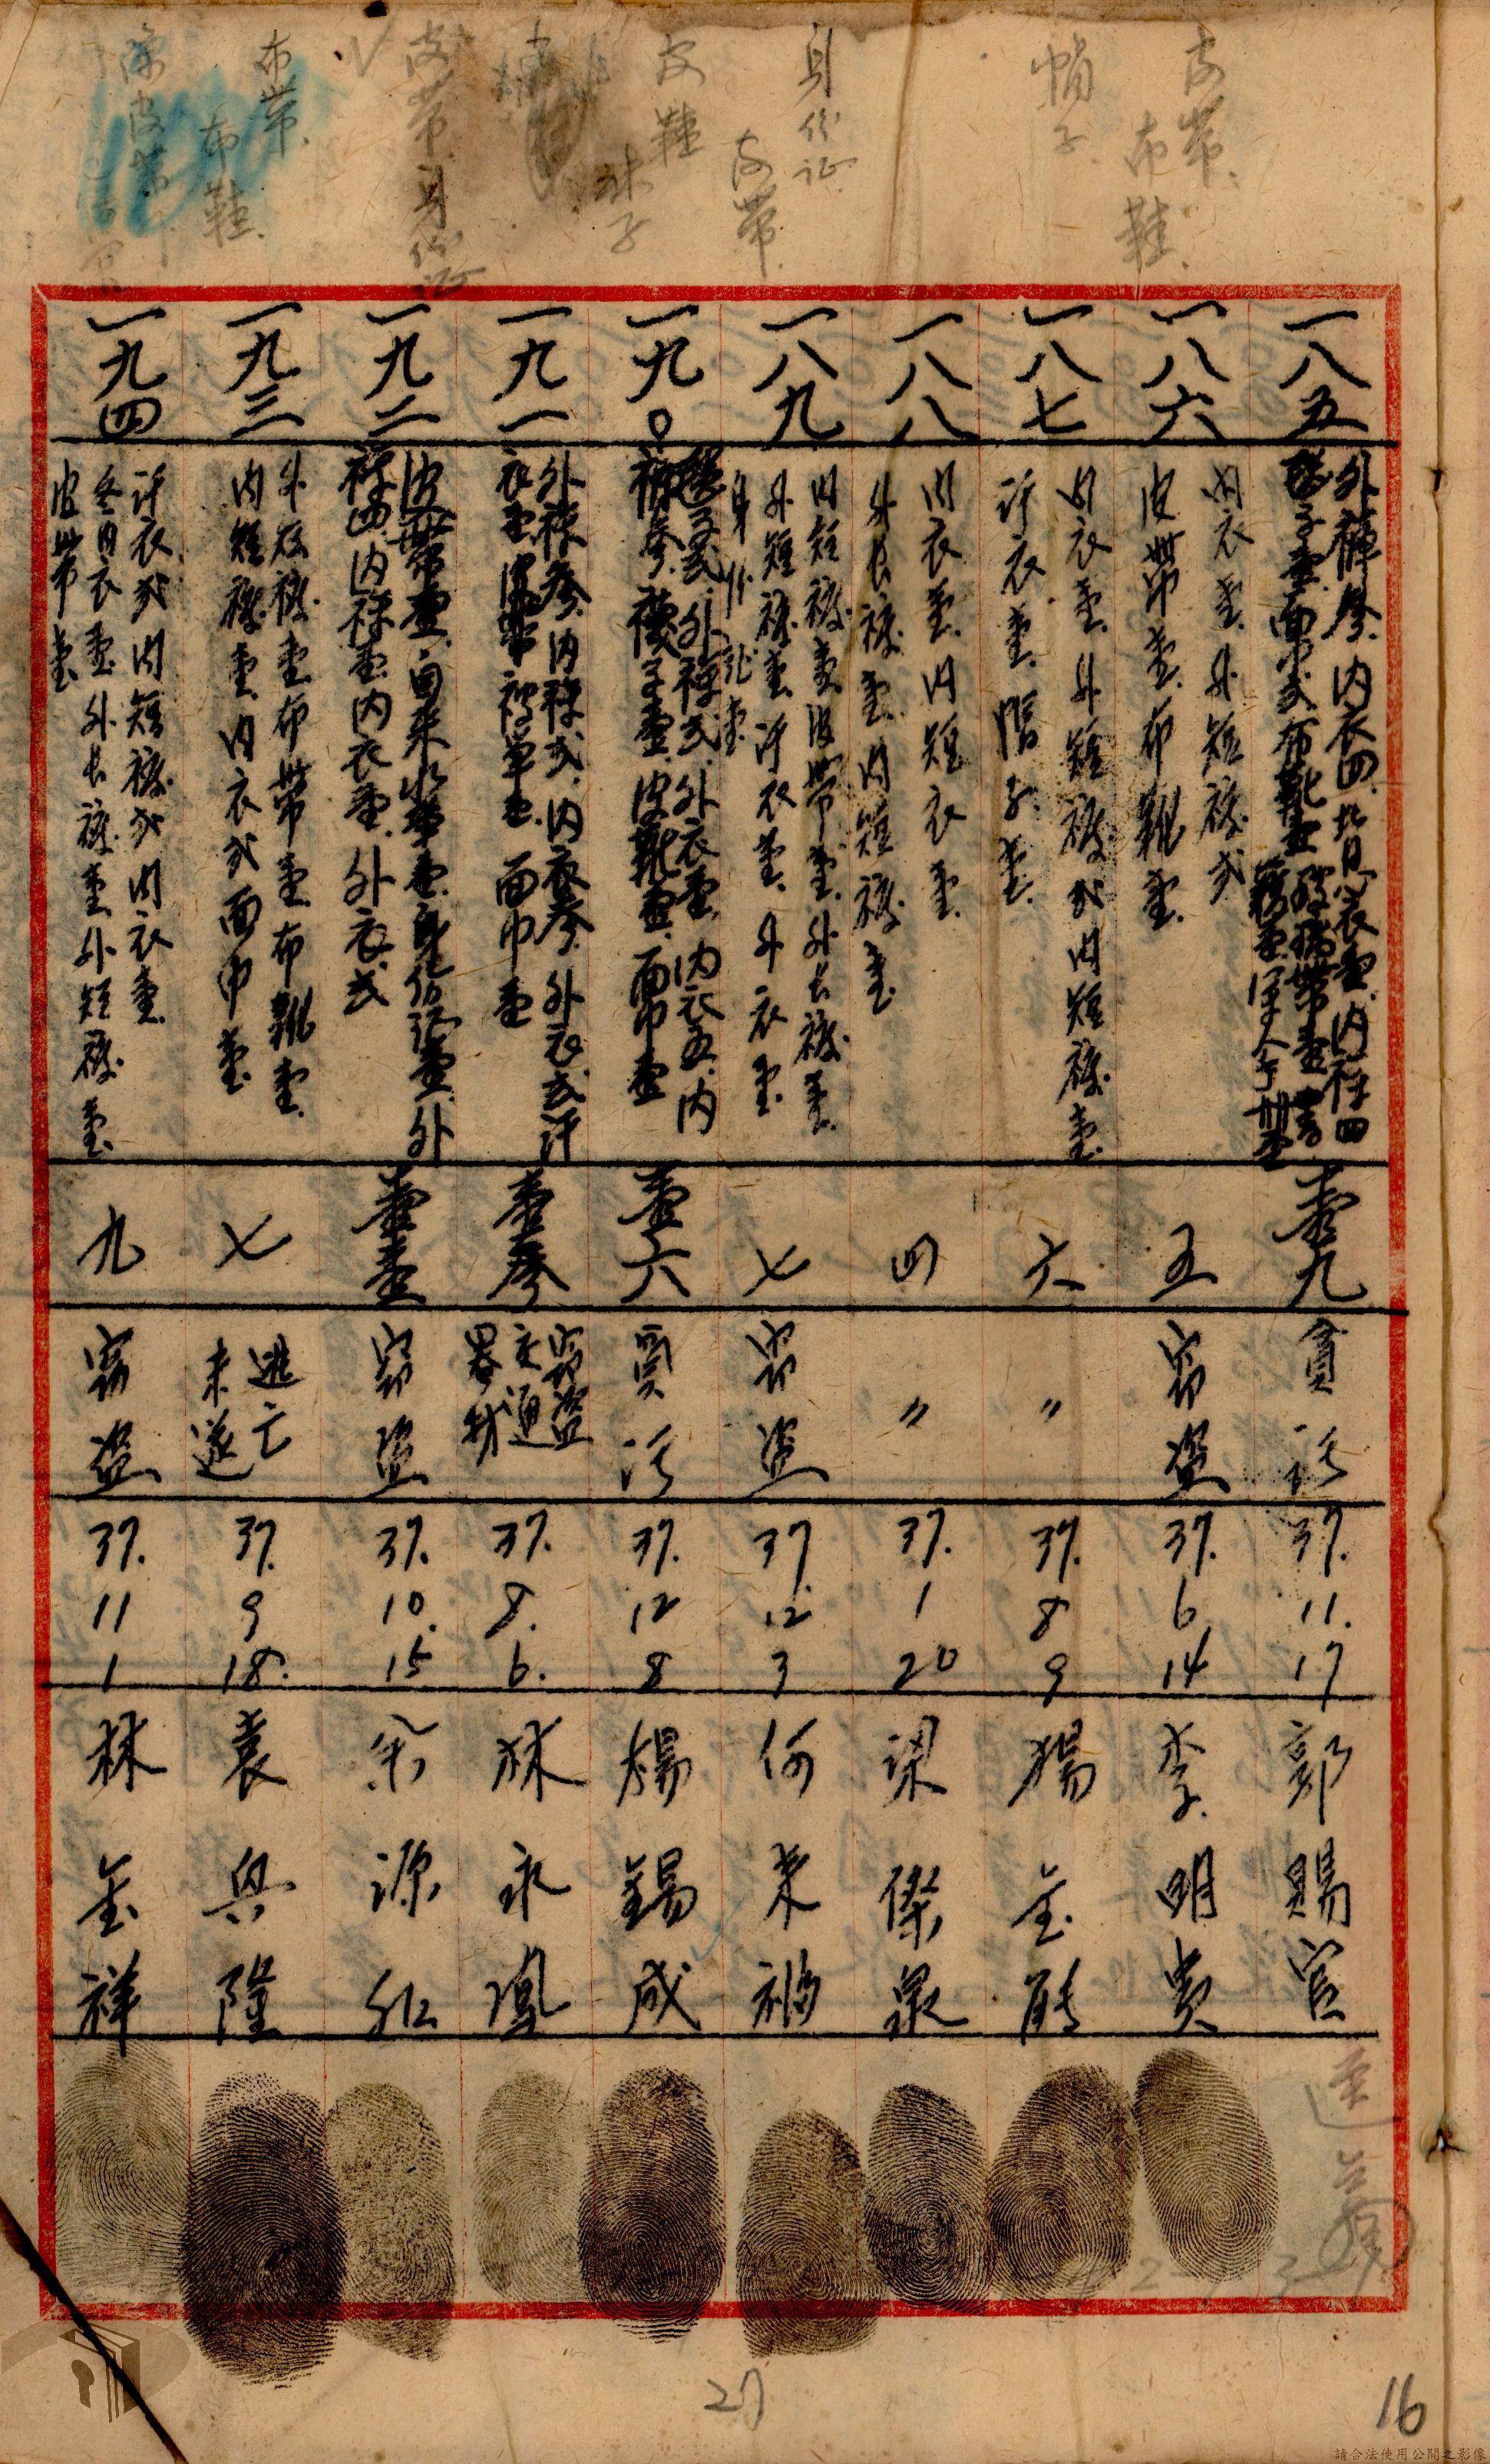 皮帶.
布鞋.
帽子
身份证
皮帶.
皮鞋
袜子
皮帶.身份证
布帶.
布鞋.
除皮帶
一八五
外褲參.內衣四.背心衣壹.內褲四
子壹.面巾弍布靴壹
貪污
37.
11.
17
郭賜官
一八六
內衣壹.外短褲弍
皮帶壹.布靴壹.
五
窃盗
37.
6
14
李明貴
一八七
內衣壹.外短褲弍內短褲壹.
汗衣壹.帽子壹.
六
〃
37.
8
9
楊金
一八八
內衣壹.內短衣壹.
外長褲壹.內短褲壹.
四
〃
37.
1
20
梁傑泉
一八九
內短褲壹皮帶壹.外長褲壹.
外短褲壹.汗衣壹.外衣壹.
身份証壹
七
窃盗
37
12.
3
何来
一九〇
弍.外褲弍.外衣壹.內衣五.內
褲參.襪子壹.皮靴壹.面巾壹
壹六
貪污
37.
12
8
楊錫成
一九一
外褲參.內褲弍.內衣參.外衣弍汗
衣壹.皮帶.被單壹.面巾壹
壹參
窃盗
37.
8.
6.
林永鳳
一九二
皮帶壹.自来水筆壹.身份証壹.外
褲四.內褲壹.內衣壹.外衣弍
壹壹
窃盗
37.
10.
15
余源
一九三
外短褲.壹布帶壹.布靴壹.
內短褲壹.內衣弍面巾壹.
七
逃亡
未遂
37.
9
18.
袁興隆
一九四
汗衣弍內短褲弍內衣壹.
冬內衣壹.外長褲壹外短褲壹.
皮帶壹
九
窃盗
37.
11
1
林金祥
27
16
請合法使用公開之影像